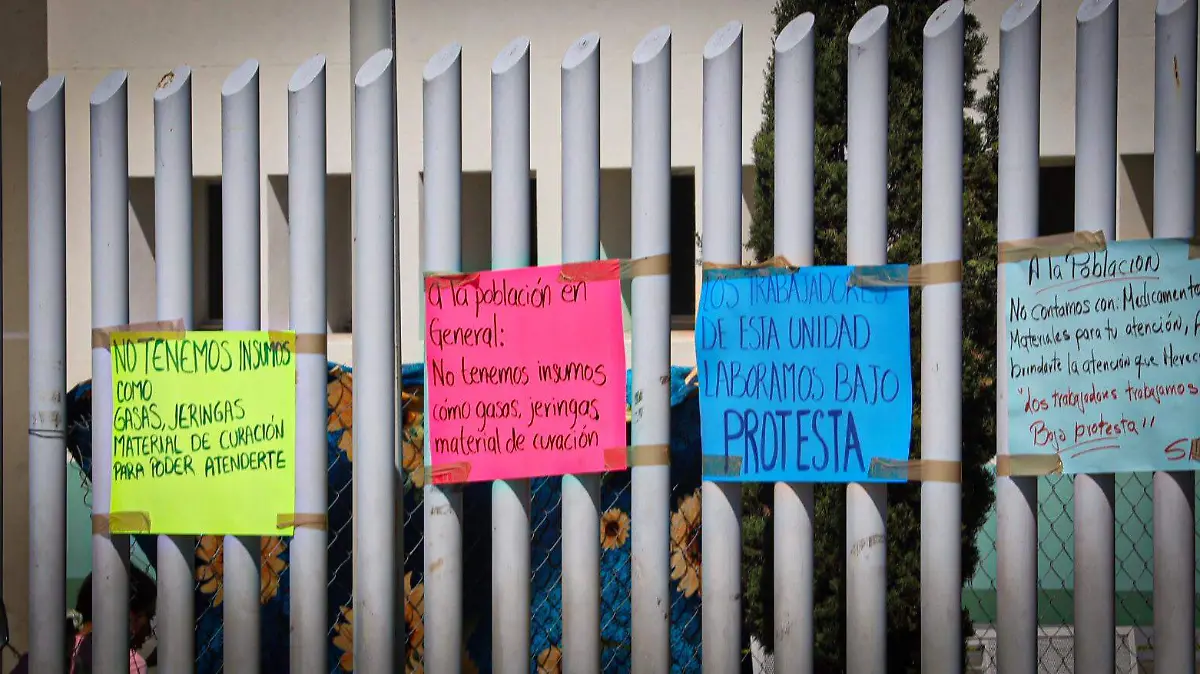 NO TENEMOS INSUMOS
COMO
GASAS, JERINGAS
MATERIAL DE CURACIÓN
PARA PODER ATENDERTE
a la población en
General:
No tenemos insumos
cómo gasas, jeringas,
material de curación
LOS TRABAJADORES
DE ESTA UNIDAD
LABORAMOS BAJO
PROTESTA
A la Población
No contamos con: Medicamento
Materiales para tu atención,
brindarte la atención que Merece
"Los trabajadores trabajamos
Bajo protesta"